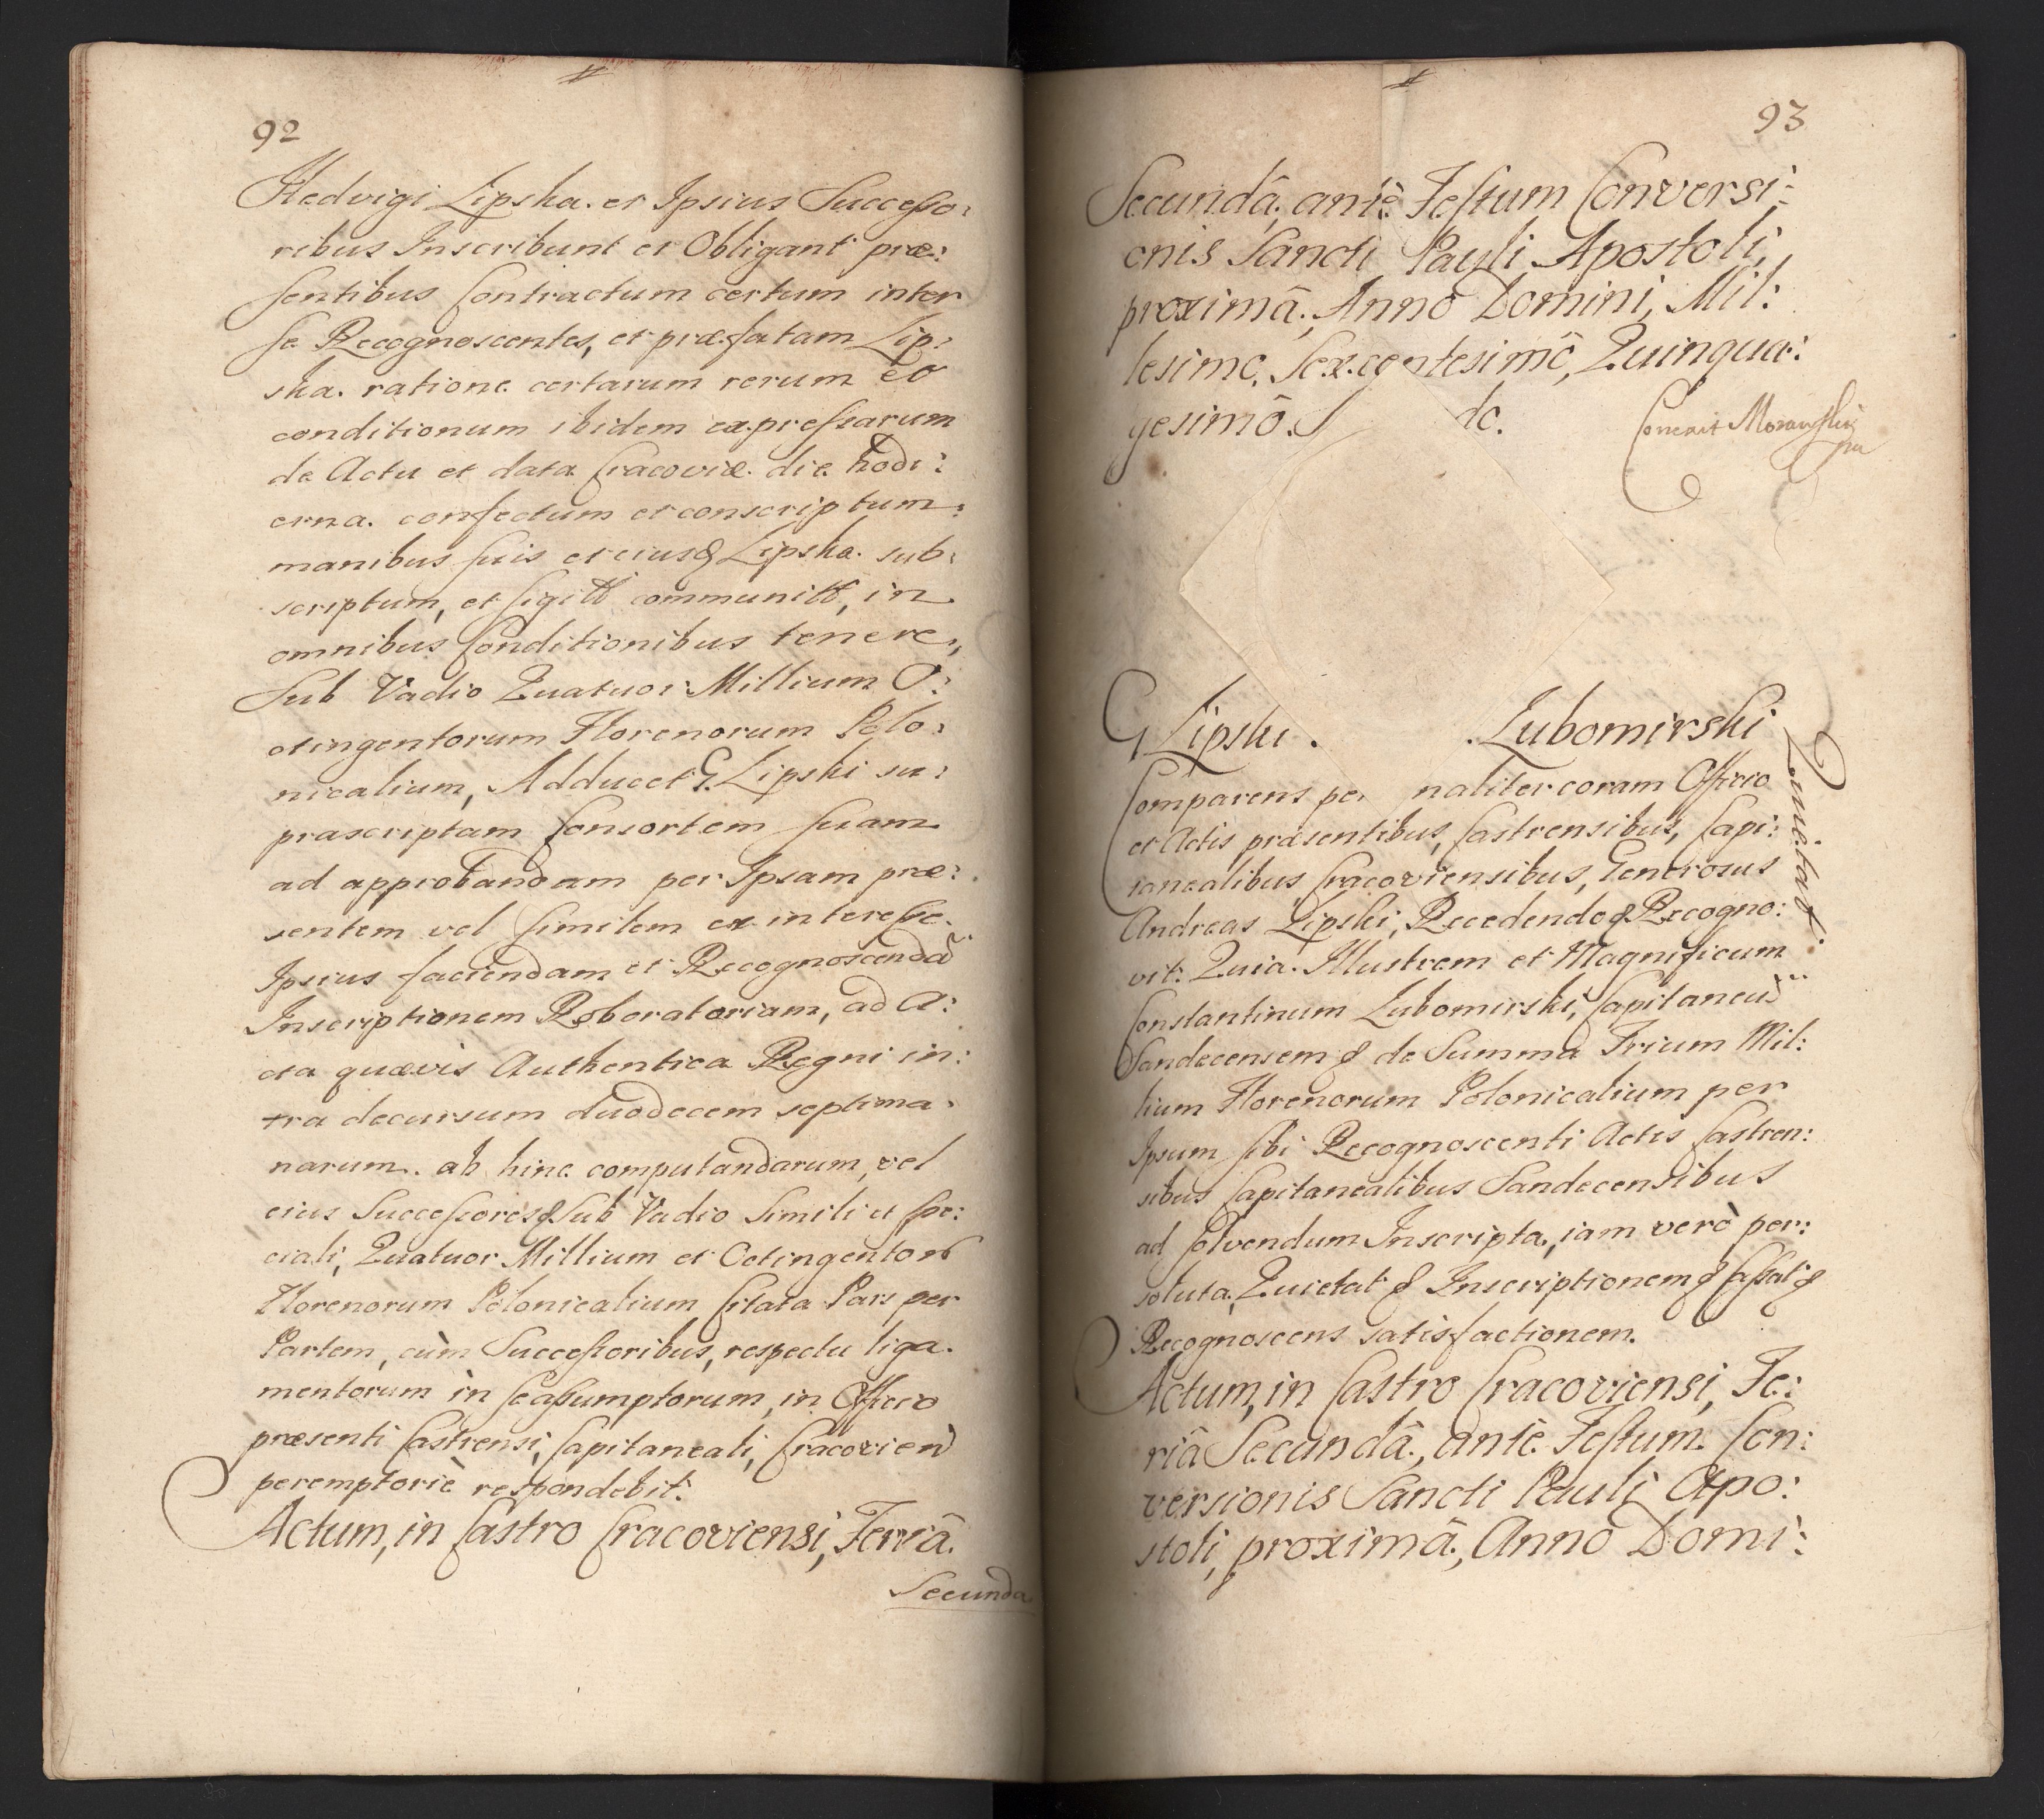 92
Hedvigi Lipska. et Ipsius Successo:
ribus Inscribunt et Obligant præ:
sentibus Contractum certum inter
se Recognoscentes, et præfatam Lip:
ska. ratione certarum rerum et
conditionum ibidem expressarum
de Actu et data Cracoviæ. die hodi:
erna. confectum et conscriptum:
manibus suis et eiusq Lipska. sub:
scriptum, et sigill communitt, in
omnibus Conditionibus tenere,
Sub Vadio Quatuor Millium O:
ctingentorum Florenorum Polo:
nicalium, Adducet G. Lipski su:
prascriptam Consortem suam
ad approbandam per Ipsam præ:
sentem vel similem ex interesse.
Ipsius faciendam et Recognoscendã
Inscriptionem Roboratoriam, ad A:
cta quævis Authentica Regni in:
tra decursum duodecem septima:
narum. ab hinc computandarum, vel
eius Successoresq Sub Vadio Simili et spe:
ciali, Quatuor Millium et Octingentor
Florenorum Polonicalium Citata Pars per
Partem, cùm Successoribus, respectu liga.
mentorum in se assumptorum, in Officio
præsenti Castrensi, Capitaneali, Cracovien
peremptoriè respondebit.
Actum, in Castro Cracoviensi, Feriâ.
Secunda
93
Secundâ, antè Festum Conversi:
onis Sancti Pauli Apostoli,
proximâ. Anno Domini, Mil:
lesimo, Sexcentesimô, Quinqua:
gesimô. S do.
G Lipski . . Lubomirski
Quietat.
Comparens per naliter coram Officio
et Actis præsentibus, Castrensibus, Capi:
tanealibus Cracoviensibus, Generosus
Andreas Lipski, Recedendoq Recogno:
vit: Quia. Illustrem et Magnificum
Constantinum Lubomirski, Capitaneũ
Sandecensem q de Summa Trium Mil:
lium Florenorum Polonicalium per
Ipsum sibi Recognoscenti Actis Castren:
sibus Capitanealibus Sandecensibus
ad solvendum Inscripta, iam verò per:
soluta, Quietat q Inscriptionem q Cassat q
Recognoscens satisfactionem.
Actum, in Castro Cracoviensi, Fe:
riâ Secundâ, antè Festum. Con:
versionis Sancti Pauli Apo:
stoli, proximâ, Anno Domi: